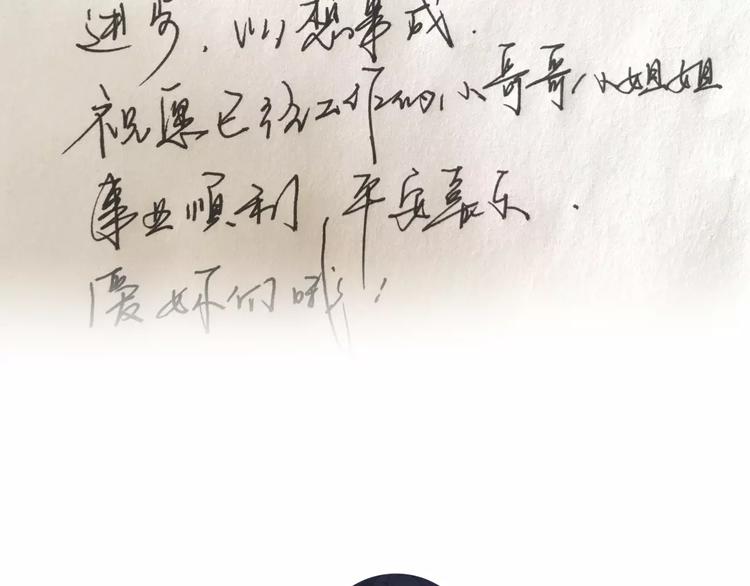 进步，心想事成.
祝愿已经工作的小哥哥小姐姐
事业顺利，平安喜乐.
爱你们哦！